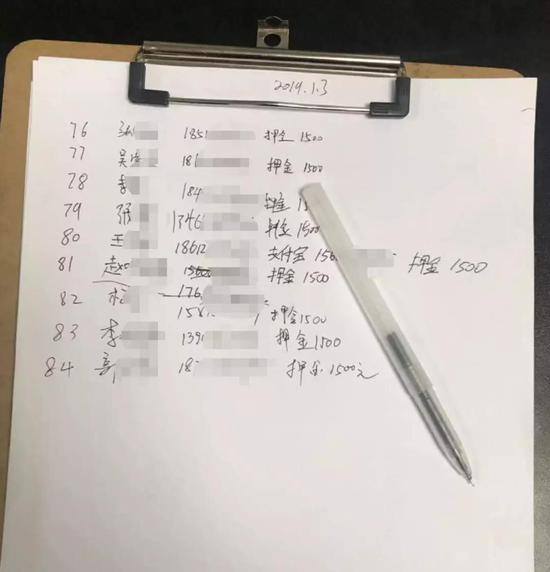 2019.1.3
76 张 185 押金 1500
77 吴 18 押金 1500
78 李 184 押金 1
79 张 1346 押金 1500
80 王 18612 支付宝 156 押金 1500
81 赵 押金 1500
82 176
158 押金 1500
83 李 139 押金 1500
84 郭 18 押金 1500元